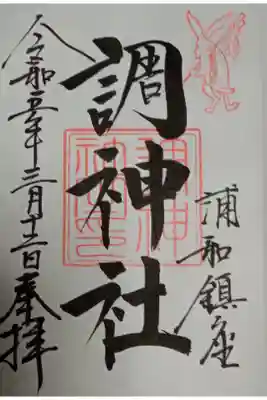 浦和鎮座
調神社
令和五年三月十二日奉拝